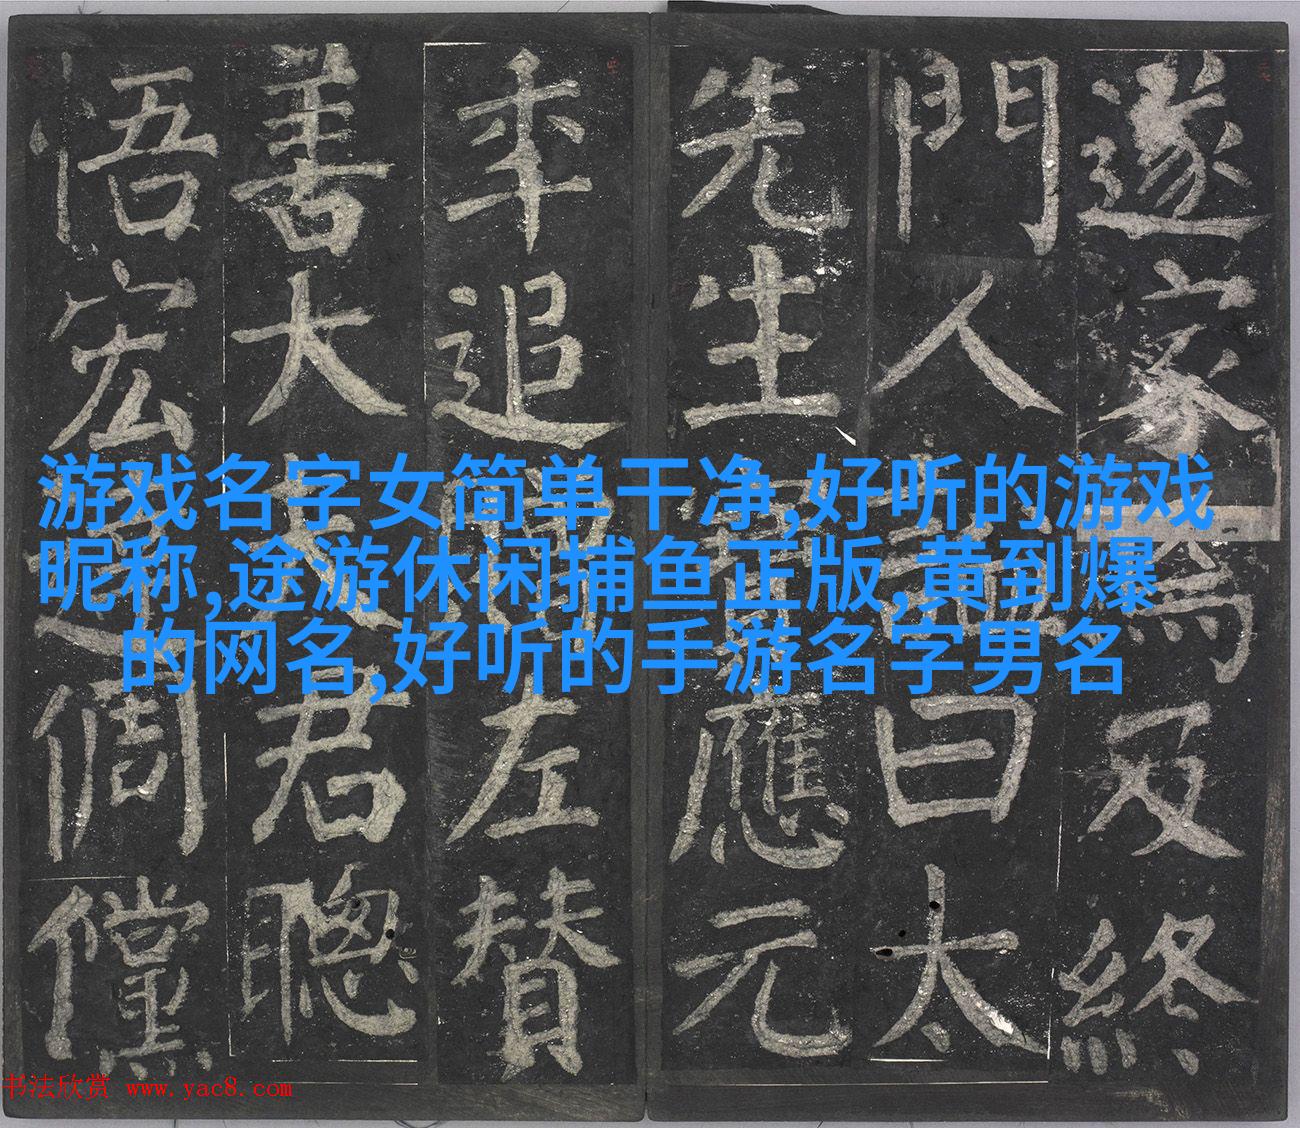 游戏名字女简单干净,好听的游戏
昵称,途游休闲捕鱼正版,黄到爆
的网名,好听的手游名字男名
遂家焉及終
門人曰太
先生應元
年追左贊
善大夫君聰
悟宏倜儻
书法欣赏 www.yac8.com